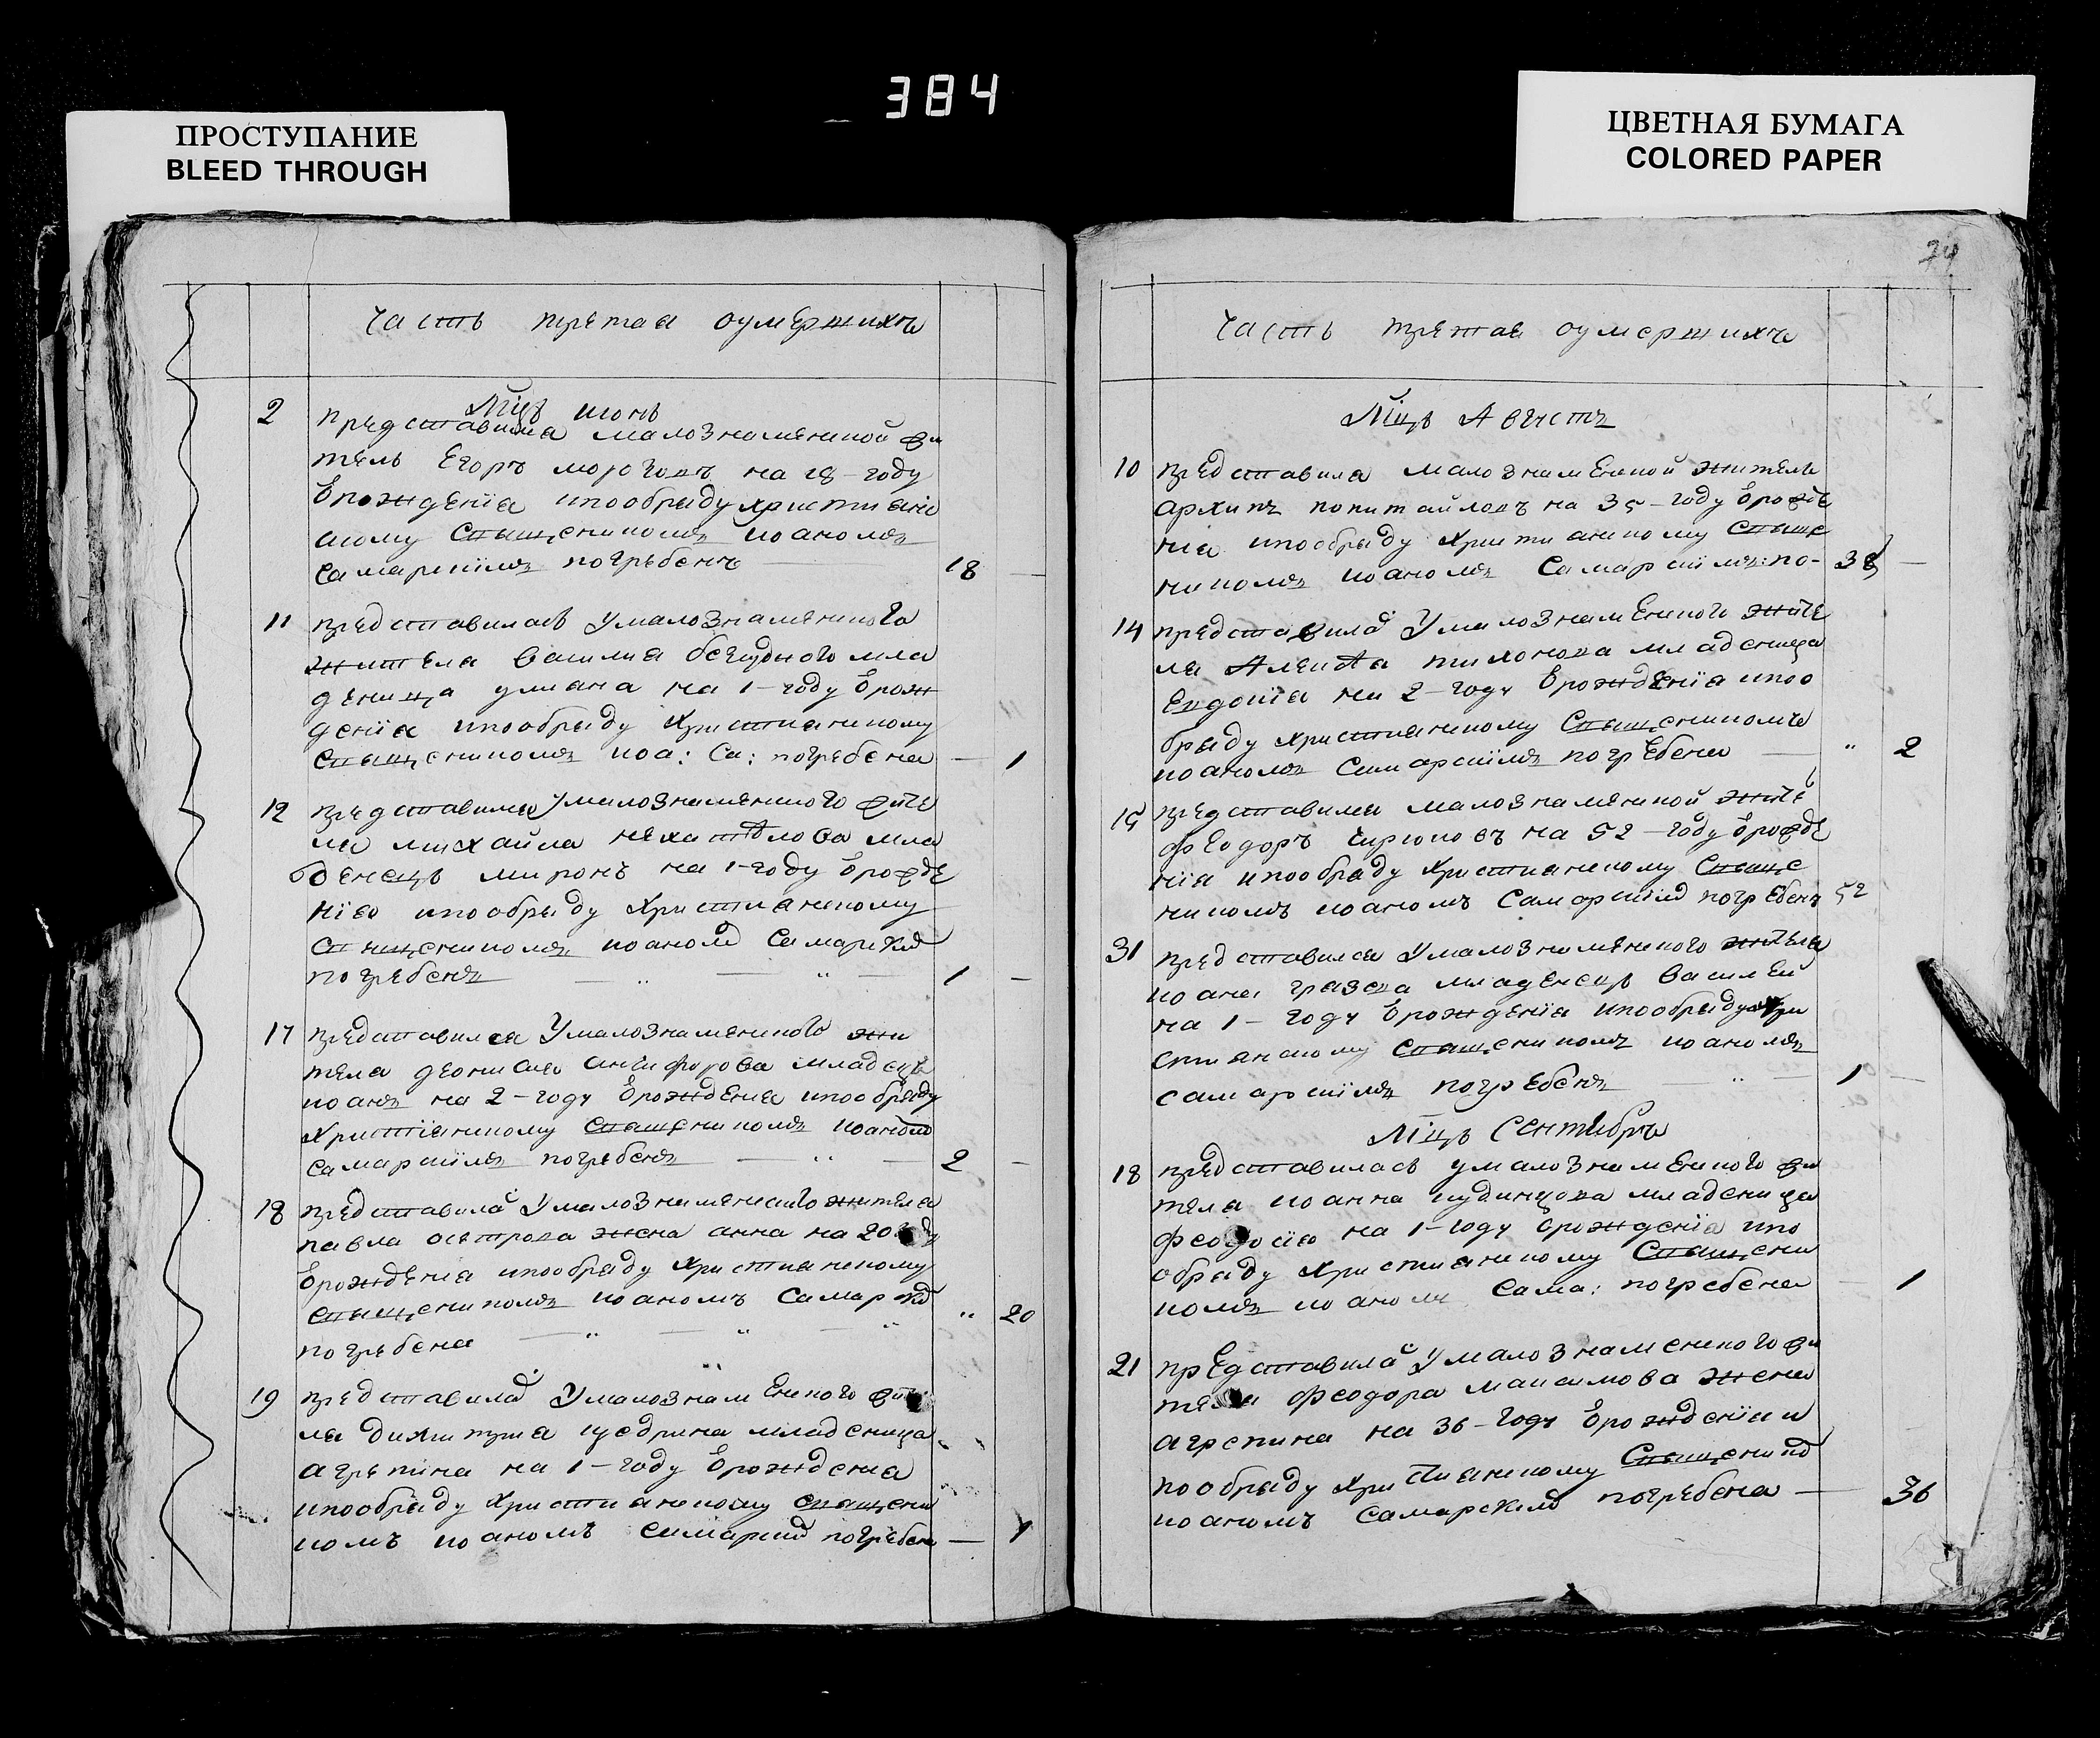 384
ПРОСТУПАНИЕ
BLEED THROUGH
ЦВЕТНАЯ БУМАГА
COLORED PAPER
Часть третаа оумершихъ
Мцъ июнь
2 представися малознаменской жи
тель Егоръ на 18-году
ѿрождения ипообрыду христиан
скому сващеникомъ иоаномъ
самарскимъ погребенъ 18 —
11 представилась умалознаменского
жителя василиа млa
деница улиана на 1-году ѿрож
дения ипообрыду христианскому
сващеникомъ иоа: са: погребена — 1
12 представися умалознаменского жите
ля михайла мла
денецъ миронъ на 1-году ѿрожде
нія ипообрыду христианскому
сващеникомъ иоаном самарским
погребенъ 1 —
17 представился умалознаменского жи
теля деонисия анцифорова младенецъ
иоанъ на 2-году ѿрождения ипообрыду
христіанскому сващеникомъ иоаном
самарскимъ погребенъ 2 —
18 представилас умалознаменского жителя
павла острова жена анна на 20 году
ѿрождения ипообрыду христианскому
сващеникомъ иоаномъ самарским
погребена 20
19 представилас умалознаменского жите
ля димитриа щедрина младеница
агрепина на 1-году ѿрождения
ипообрыду христианскому сващени
комъ иоаномъ самарским погребена — 1
24
Часть третая оумершихъ
Мцъ Августъ
10 представися малознаменской житель
архипъ на 35-году ѿрожде
ния ипообрыду христианскому сваще
никомъ иоаномъ самарскимъ: по- 35 —
14 представилас умалознаменского жите
ля Алексѣа тихонова младеница
Евдокіа на 2-году ѿрожденіа ипоо
брыду христианскому сващеникомъ
иоаномъ самарскимъ погребена — 2
15 представися малознаменской жите
феодоръ на 52-году ѿрожде
нія ипообрыду христианскому сваще
никомъ иоаномъ самарским погребенъ 52
31 представился умалознаменского жителя
иоана грязева младенецъ василей
на 1-году ѿрожденія ипообрыду хри
стианскому сващеникомъ иоаномъ
самарскимъ погребенъ 1 —
Мцъ Сентябръ
18 представилась умалознаменского жи
теля иоанна кудинцова младеница
феодосіа на 1-году ѿрожденіа ипо
обрыду христианскому сващени
комъ иоаномъ сама: погребена 1
21 представилас умалознаменского жи
теля феодора максимова жена
агрепина на 36-году ѿрожденія и
пообрыду христианскому сващеником
иоаномъ самарским погребена — 36